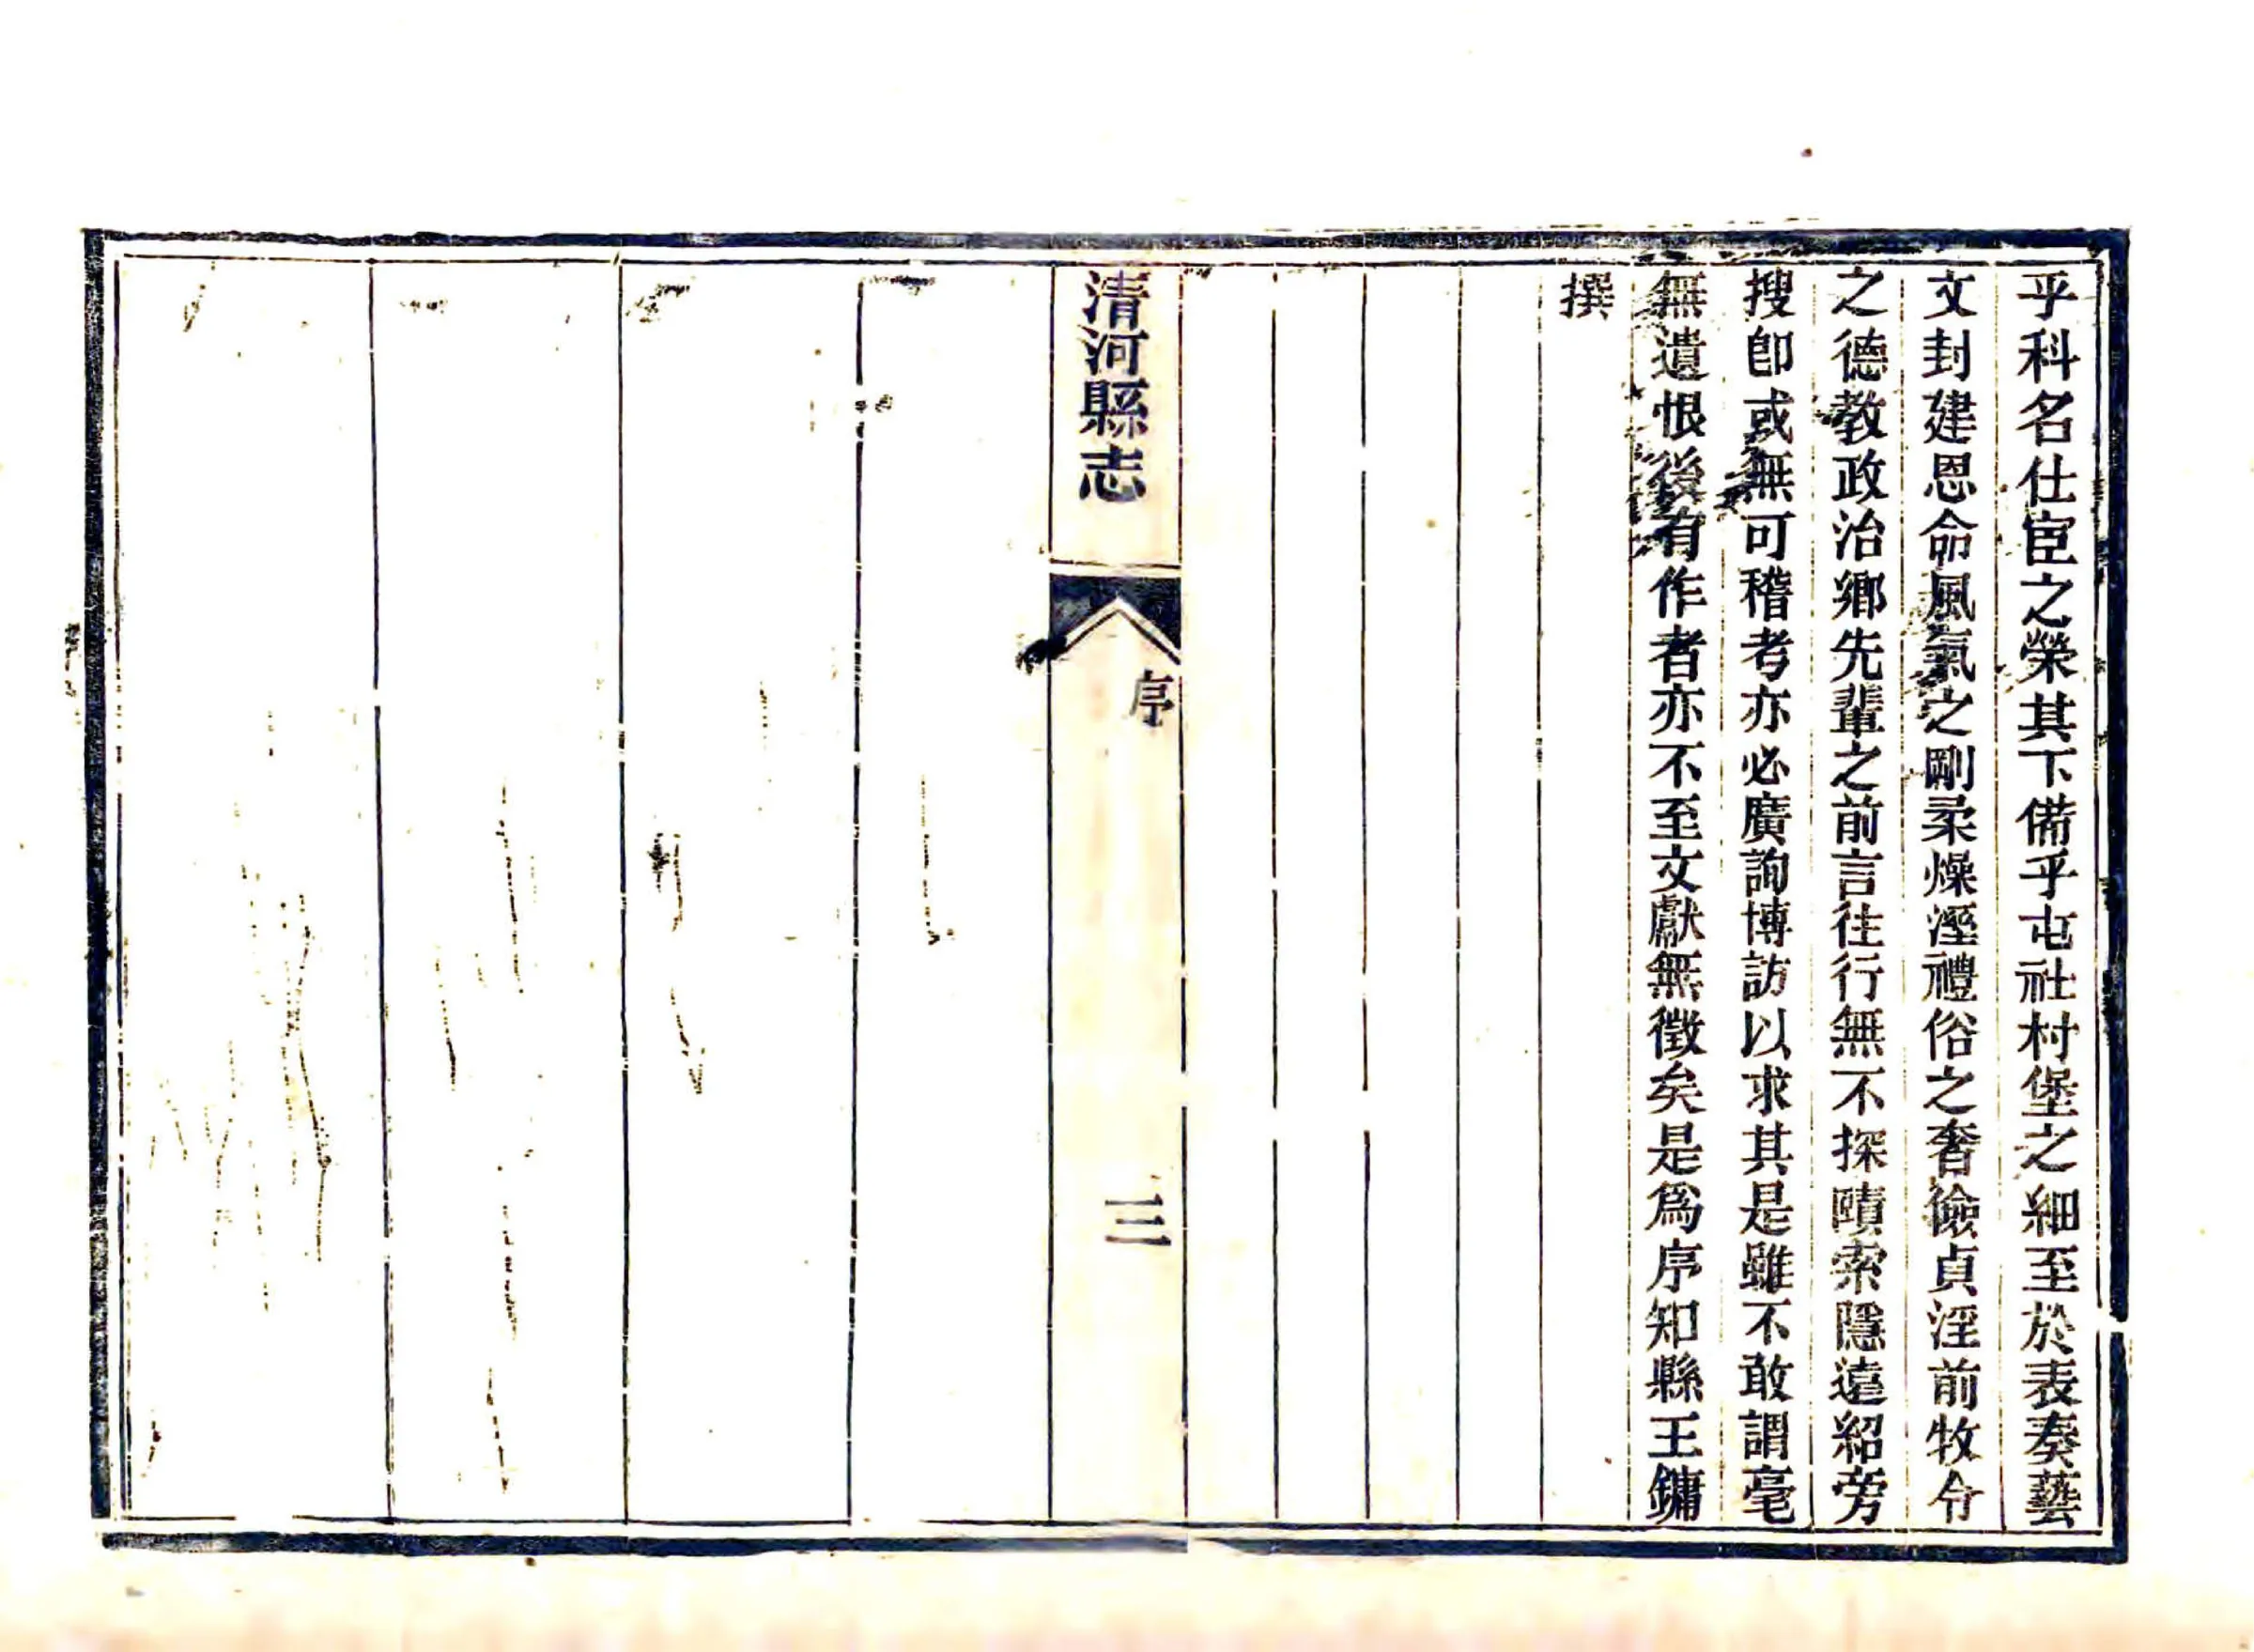 乎科名仕宦之榮其下備乎屯社村堡之細至於表奏藝
文封建恩命風氣之剛柔燥溼禮俗之奢儉貞淫前牧令
之德教政治鄉先輩之前言往行無不探賾索隱遠紹旁
搜卽或無可稽考亦必廣詢博訪以求其是雖不敢謂毫
無遺恨後有作者亦不至文獻無徵矣是爲序知縣王鏞
撰
清河縣志
序
三